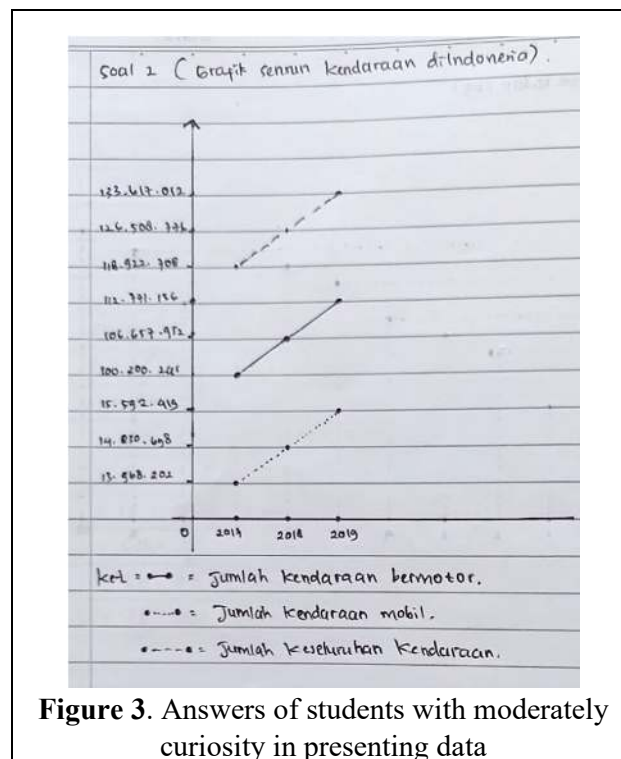 Soal 2 (Grafik sensus kendaraan diIndonesia).
133.617.012
126.508.776
118.922.708
112.771.136
106.657.952
100.200.245
15.592.419
14.830.698
13.968.202
0 2017 2018 2019
ket = = Jumlah kendaraan bermotor.
= Jumlah kendaraan mobil.
= Jumlah keseluruhan kendaraan.
Figure 3. Answers of students with moderately
curiosity in presenting data